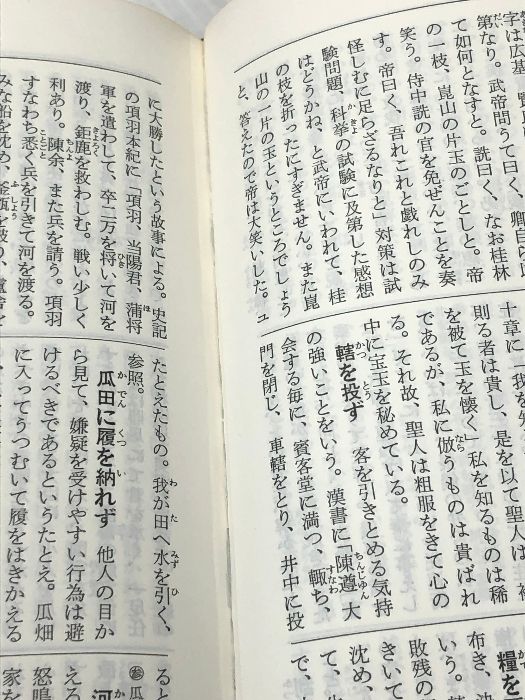 字は広基
第なり。武帝問うて曰く、卿自ら
て如何となすと。詵曰く、なお桂林
の一枝、崑山の片玉のごとしと。帝
笑う。侍中詵の官を免ぜんことを奏
す。帝曰く、吾れこれと戯れしのみ
怪しむに足らざるなりと」対策は試
験問題、科挙の試験に及第した感想
はどうかね、と武帝にいわれて、桂
の枝を折ったにすぎません。また崑
山の一片の玉というところでしょう
と、答えたので帝は大笑いした。ユ
十章に「我を
則る者は貴し、是を以て聖人は
を被て玉を懐く」私を知るものは稀
であるが、私に倣うものは貴ばれ
る。それ故、聖人は粗服をきて心の
中に宝玉を秘めている。
轄を投ず 客を引きとめる気持
の強いことをいう。漢書に「陳遵大
会する毎に、賓客堂に満つ、輒ち、
門を閉じ、車轄をとり、井中に投
糧を
布き、
いう。
敗残の
きいて
沈め、
て、
で、
に大勝したという故事による。史記
の項羽本紀に「項羽、当陽君、蒲将
軍を遣わして、卒二万を将いて河を
渡り、鉅鹿を救わしむ。戦い少しく
利あり。陳余、また兵を請う。項羽
すなわち悉く兵を引きて河を渡る。
みな船を沈め、釜甑を破り、廬舎を
たとえたもの。我が田へ水を引く、
参照。
瓜田に履を納れず 他人の目か
ら見て、嫌疑を受けやすい行為は避
けるべきであるというたとえ。瓜畑
に入ってうつむいて履をはきかえる
ると
参瓜
河
える
怒鳴
家を